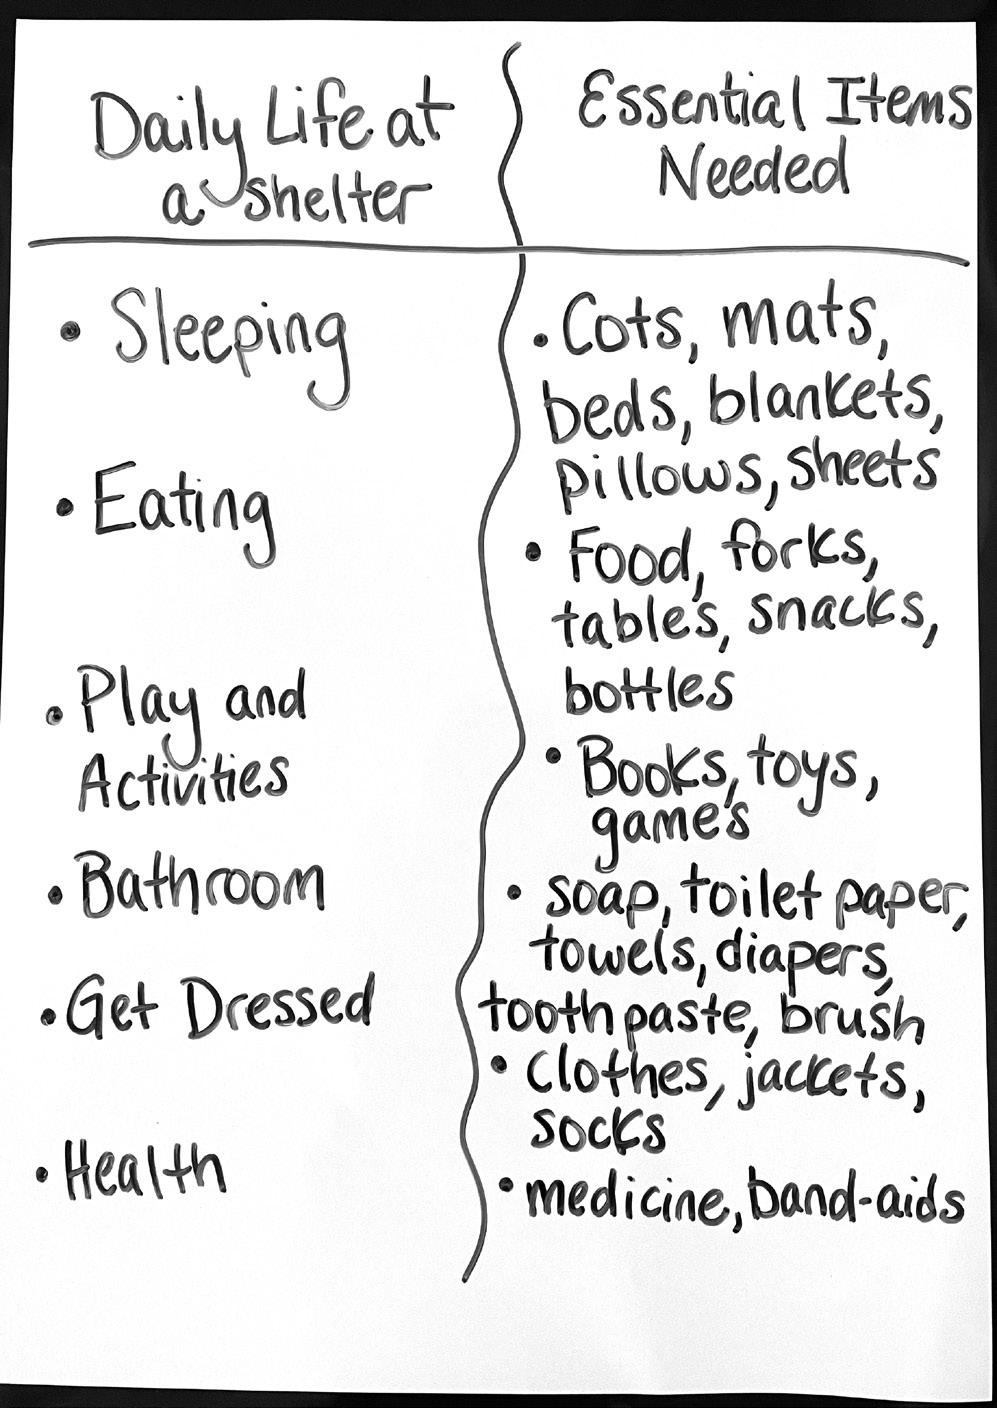 Daily Life at
a shelter
Essential Items
Needed
• Sleeping
• Eating
• Play and
Activities
• Bathroom
• Get Dressed
• Health
• Cots, mats,
beds, blankets,
pillows, sheets
• Food, forks,
tables, snacks,
bottles
• Books, toys,
games
• soap, toilet paper,
towels, diapers,
toothpaste, brush
• clothes, jackets,
socks
• medicine, band-aids